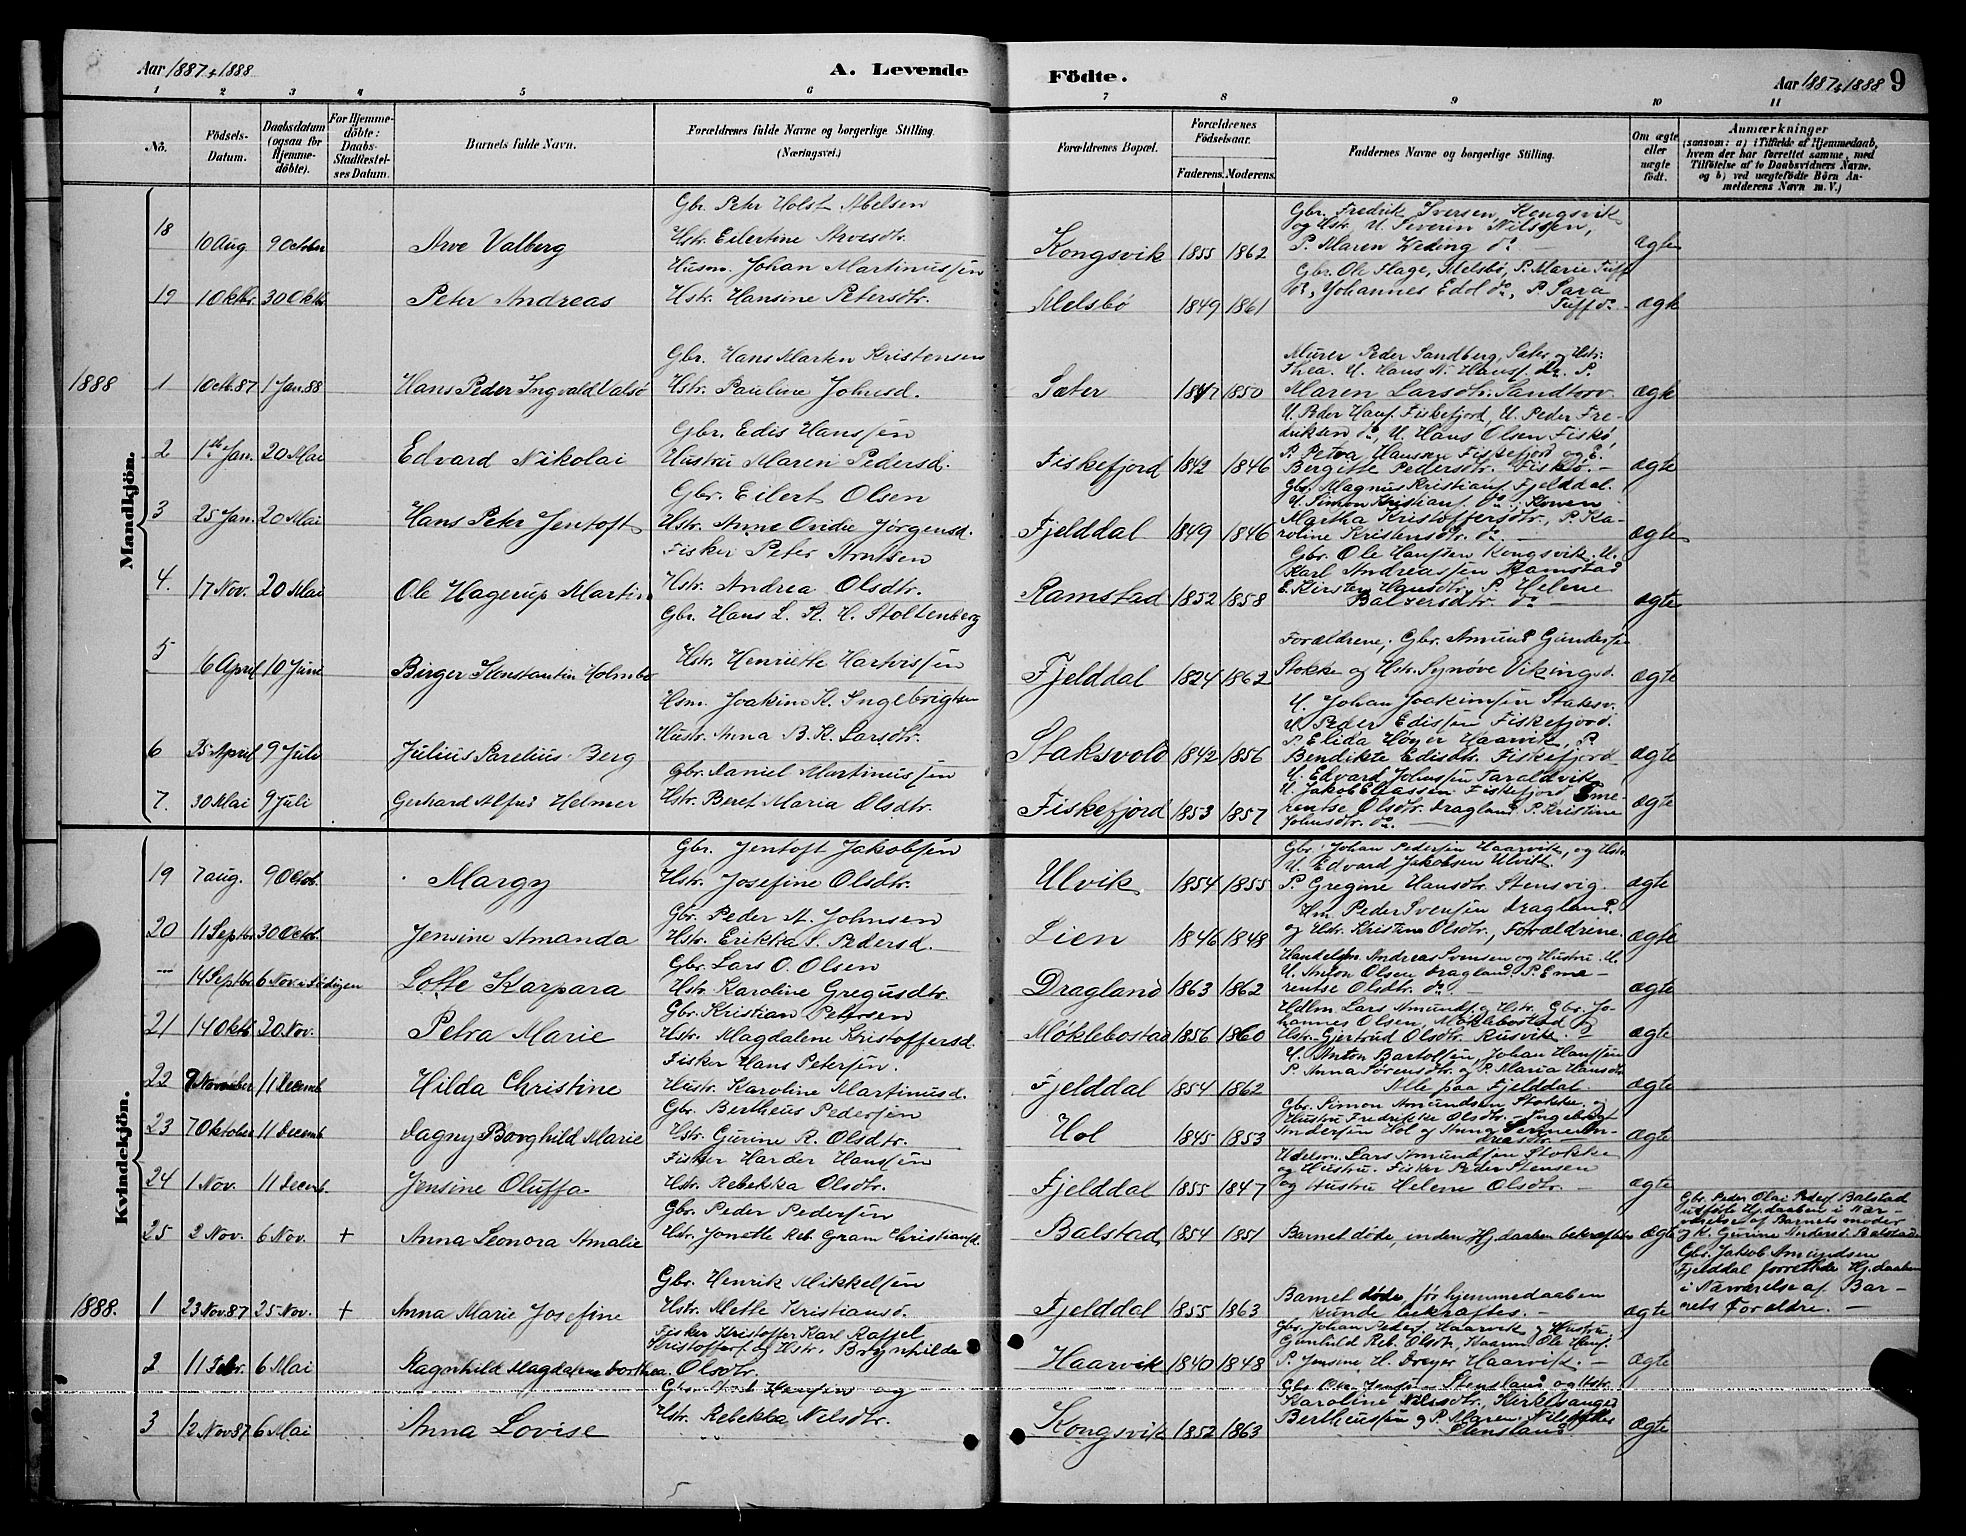 Aar 1887 & 1888
A. Levende
Födte.
Aar 1887 & 1888 9
1 2 3 4 5 6 7 8 9 10 11
No.
Födsels-Datum.
Daabsdatum (ogsaa for Hjemme-döbte).
For Hjemme-döbte: Daabs-Stadfæstel-ses Datum.
Barnets fulde Navn.
Forældrenes fulde Navne og borgerlige Stilling. (Næringsvei.)
Forældrenes Bopæl.
Forældrenes Födselsaar.
Faderens. Moderens.
Faddernes Navne og borgerlige Stilling.
Om ægte eller uægte födt.
Anmærkninger
(saasom: a) i Tilfælde af Hjemmedaab, hvem der har forrettet samme, med Tilföielse af to Daabsvidners Navne, og b) ved uægtefödte Börn An-melderens Navn m. V.)
Mandkjön.
Gbr. Peter Holst Abelsen
Gbr. Fredrik Iversen, Kongsvik
18 10 Aug 9 October Arve Valberg Hstr. Eilertine Arvesdtr. Kongsvik 1855 1862 og Hstr. U. Severin Nilssen, P. Maren Weding do. - ægte
Husm. Johan Martinussen
Gbr. Ole Flage, Melsbø, P. Marie Tuff
19 1 Oktbr. 30 Oktb. Peter Andreas Hstr. Hansine Petersdtr. Melsbø 1849 1861 do, Johannes Edol do, P. Sara Tuff do. - ægte
Gbr. Hans Marten Kristensen
Murer Peder Sandberg, Sæter, og Hstr.
Thea. U. Hans N. Hanss. do. P.
1888 1 1 Octb. 87 1 Jan. 88 Hans Peder Ingvald Valsø Hstr. Pauline Johnsd. Sæter 1847 1850 Maren Larsdtr. Sandtorv ægte
Gbr. Edis Hanssen
U. Peder Hanss. Fiskefjord, U. Peder Fre-
driksen do, U. Hans Olsen Fiskø,
P. Petra Hanssen Fiskefjord og E.
2 1ste Jan. 20 Mai Edvard Nikolai Hustru Maren Pedersd. Fiskefjord 1842 1846 Bergitte Pedersdtr. Fiskø. - ægte
Gbr. Eilert Olsen
Gbr. Magnus Kristians. Fjelddal.
U. Simon Kristians. do, Konen
3 25 Jan. 20 Mai Hans Peter Jentoft Hstr. Anne Ovidie Jørgensd. Fjelddal 1849 1846 Martha Kristoffersdtr., P. Ka-
roline Kristensdtr. do. - ægte
Fisker Peter Arntsen
Gbr. Ole Hanssen Kongsvik. U.
Karl Andreassen Ramstad
4. 17 Nov. 20 Mai Ole Hagerup Martin Hstr. Andrea Olsdtr. Ramstad 1852 1858 E. Kirsten Hansdtr., P. Helene
Balzersdtr. do - ægte
Gbr. Hans L. K. H. Stoltenberg
Forældrene, Gbr. Amund Gunderss.
5 6 April 10 Juni Birger Konstantin Holmbo Hstr. Henriette Hartvissen Fjelddal 1824 1862 Stokke og Hstr. Synøve Vikingsd. ægte
Hsm. Joakim K. Ingebrigtsen
U. Johan Joakimsen Staksv.
U. Peder Edissen Fiskefjord.
P. Elida Høyer Haarvik, P.
6 25 April 9 Juli Julius Parelius Berg Hustr. Anna B. K. Larsdtr. Staksvold 1842 1856 Bendikte Edisdtr. Fiskefjord ægte
Gbr. Daniel Martinussen
U. Edvard Johnsen Taraldsvik
U. Jakob Eliassen Fiskefjord Eme-
7. 30 Mai 9 Juli Gerhard Alfred Helmer Hstr. Beret Maria Olsdtr. Fiskefjord 1853 1857 rentse Olsdtr. Dragland P. Kristine
Johnsdtr. do. - ægte
Kvindekjön.
Gbr. Jentoft Jakobsen
Gbr. Johan Pedersen Haarvik, og Hstr
U. Edvard Jakobsen Ulvik.
19 7 aug. 9 Octob. Margy Hstr. Josefine Olsdtr. Ulvik 1854 1855 P. Gregine Hansdtr. Stensvig. ægte
Gbr. Peder A. Johnsen
Hm. Peder Svensen Dragland.
20 11 Septbr. 30 Octob. Jensine Amanda Hstr. Erikka S. Pedersd. Lien 1846 1848 og Hstr. Kristine Olsdtr., Forældrene. ægte
Gbr. Lars O. Olsen
Handelsm. Andreas Svensen og Hustru. U.
U. Anton Olsen Dragland. P. Eme-
- 14 Septbr. 6 Nov. i Lødigen Lotte Karpara Hstr. Karoline Gregusdtr. Dragland 1863 1862 rentse Olsdtr. do. - ægte
Gbr. Kristian Petersen
Hdlm. Lars Amunds. og Hstr., Gbr. Jo-
hannes Olsen, Møklebostad og
21 14 Oktb. 20 Nov. Petra Marie Hstr. Magdalene Kristoffersd. Møklebostad 1856 1860 Hstr. Gjertrud Olsdtr. Rusvik. - ægte
Fisker Hans Petersen.
U. Anton Bartolsen, Johan Hanssen
P. Anna Sørensdtr. og P. Maria Hansd.
22 9 November 11 Decemb. Hilda Christine Hustr. Karoline Martinusd. Fjelddal 1854 1862 Alle paa Fjelddal. ægte
Gbr. Bertheus Pedersen
Gbr. Simon Amundsen Stokke. og
Hustru Fredrikke Olsdtr. - Ingebrigt
23 7 Oktober 11 Decemb. Dagny Borghild Marie Hstr. Gurine R. Olsdtr. Hol 1845 1853 Andersen Hol og Anna
dreasdtr. - ægte
Fisker Harder Hanssen
Udelsm. Lars Amundsen Stokke
og Hustru. Fisker Peder Stensen
24 1 Nov. 11 Decemb. Jensine Oluffa Hstr. Rebekka Olsdtr. Fjelddal 1855 1847 og Hustru Helene Olsdtr. - ægte
Gbr. Peder Pedersen
25 2 Nov. 6 Nov. + Anna Leonora Amalie Hstr. Jonette Reb. Gram Christiansd. Balstad 1854 1851 Barnet døde, inden Hj.daaben bekræftes ægte
Gbr. Peder Olai Peders. Balstad
udførte Hj.daaben i Nær-
værelse af Barnets moder
og K. Gurine Andersd. Balstad
Gbr. Henrik Mikkelsen
1888. 1 23 Nov 87 25 Nov. + Anna Marie Josefine Hstr. Mette Kristiansd. Fjelddal 1855 1863 Barnet døde før hjemmedaaben
kunde bekræftes. - ægte
Gbr. Jakob Amundsen
Fjelddal forrettede Hj.daaben
i Nærværelse af Bar-
nets Forældre. -
Fisker Kristoffer Karl Raffel
Kristoffers. og Hstr. Brynhilde
Gbr. Johan Peders. Haarvik og Hustru
Gunhild Reb. Olsdtr. Haarv. Ole Hans.
2 11 Febr. 6 Mai Ragnhild Magdalena Dorthea. Olsdtr. Haarvik 1840 1848 P. Jensine H. Dreyer Haarvik. - ægte
Gbr. Hanssen og
Gbr. Ole Jenssen Stensland og Hstr.
Karoline Nilsdtr. Kirkesanger
3 12 Nov 87 6 Mai Anna Lovise Hstr. Rebekka Nilsdtr. Kongsvik 1852 1863 Bertheussen og P. Maren Nilsdtr
Stensland. ægte